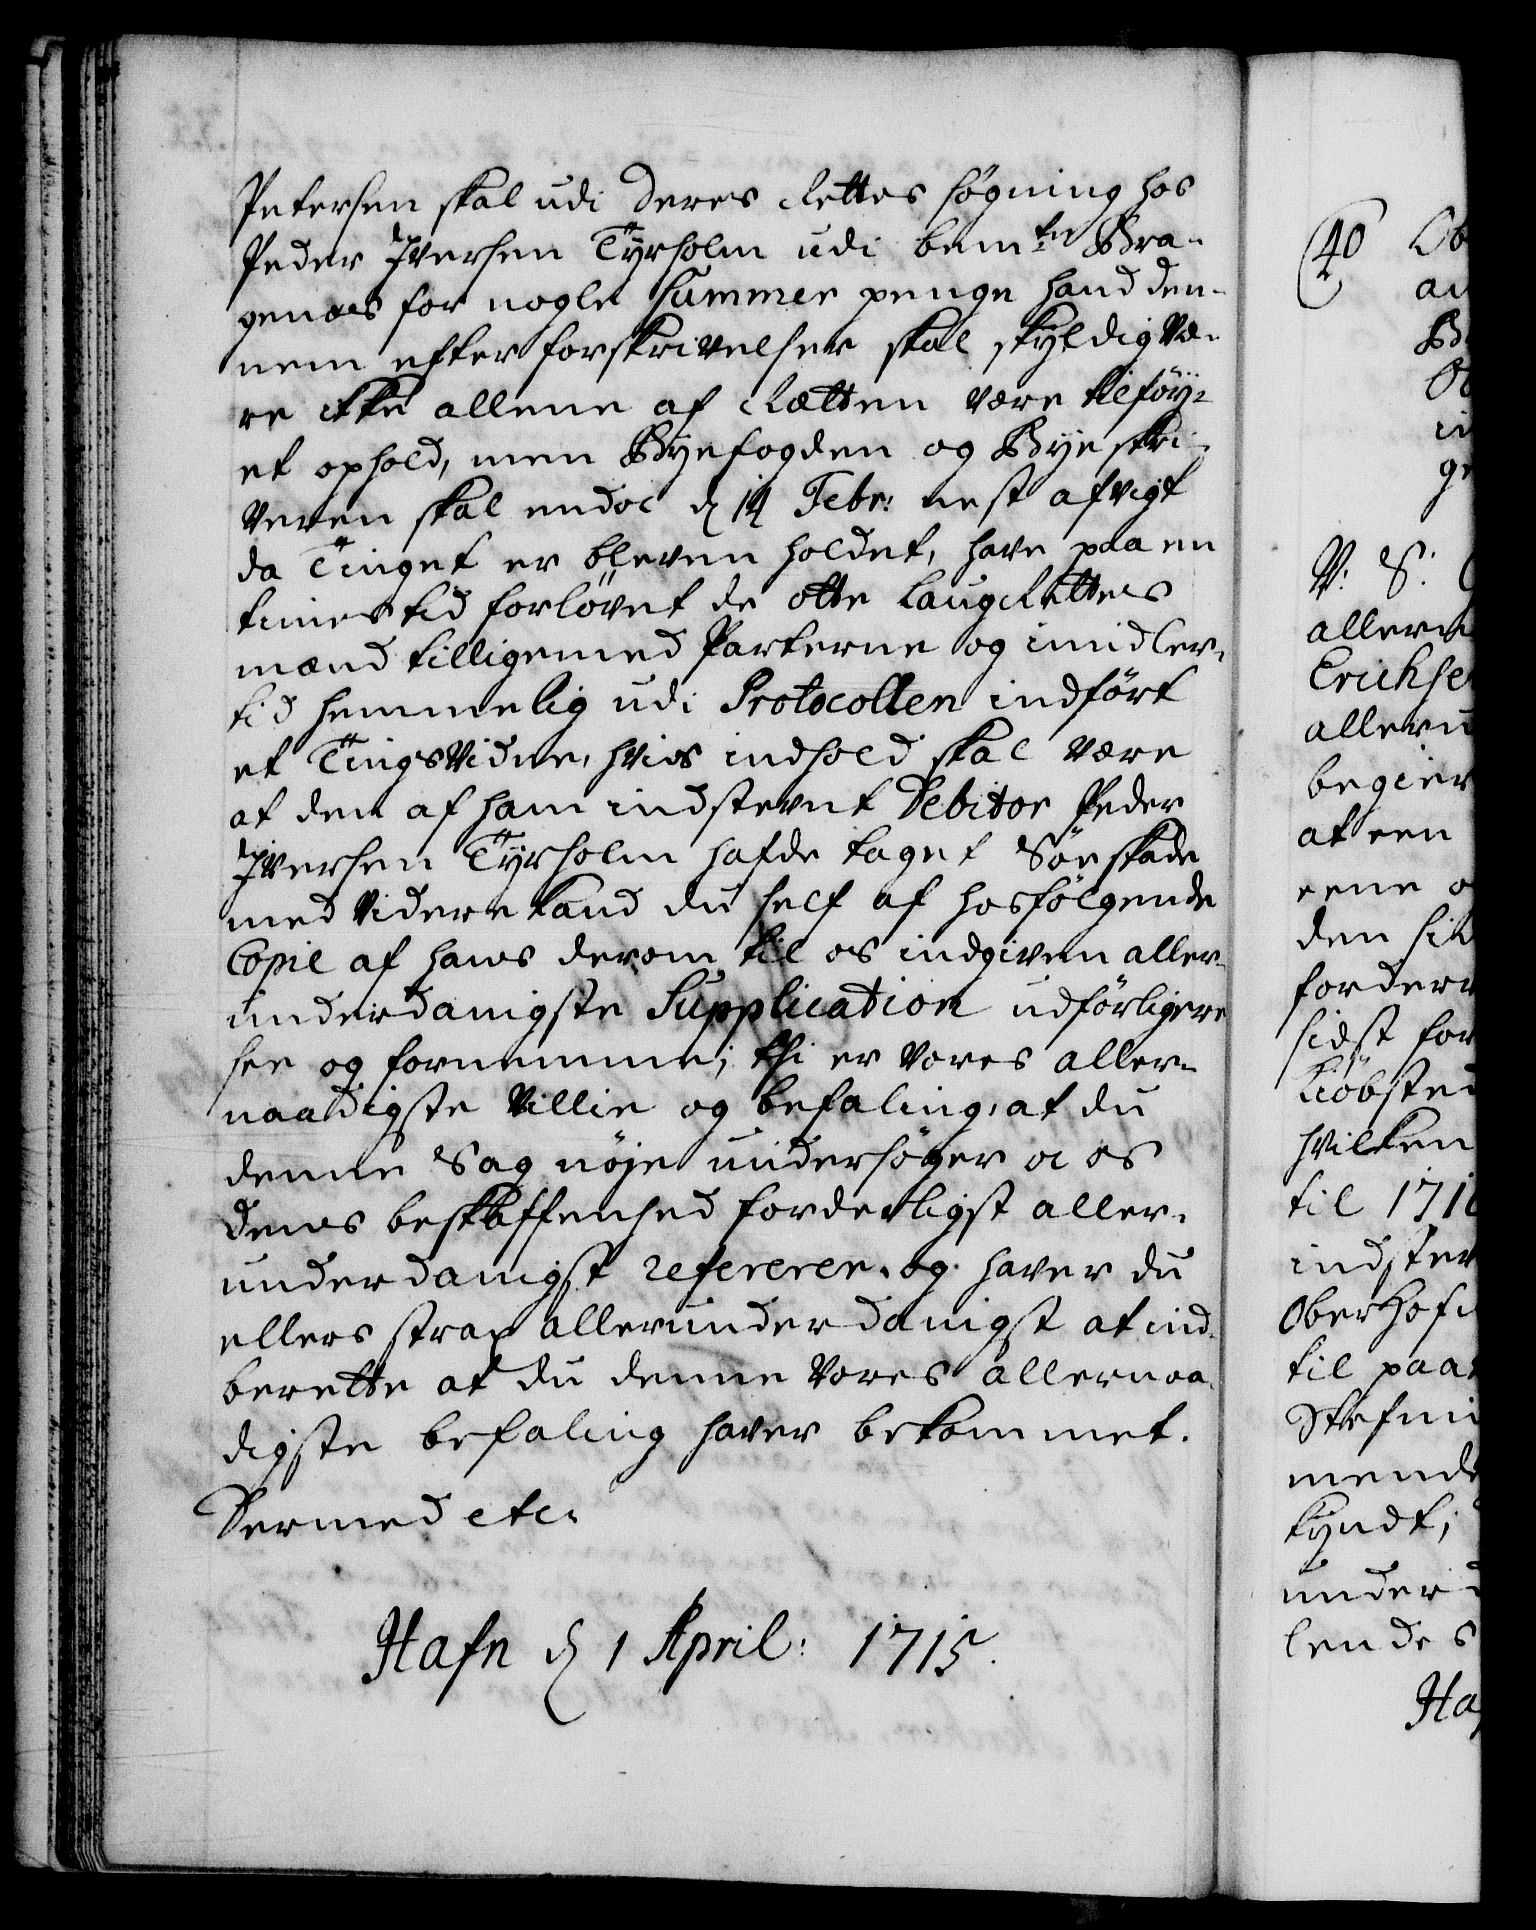 Petersen skal udi deres Rettes søgning hos
Peder Iversen Tyrholm udi bemte Bra-
genæs for nogle Summer penge hand den-
nem efter forskrivelser skal skyldig væ-
re ikke allene af Rætten være tilføy-
et ophold, men Byefogden og Byeskri-
veren skal endoc d 14 Febr: nest afvigt
da Tinget er bleven holdet, have paa en
times tid forløvet de otte LaugRettes
mænd tilligemed Parterne og imidler-
tid hemmelig udi Protocollen indført
et Tingsvidne, hvis indhold skal være
at den af ham indstevnt Debitor Peder
Iversen Tyrholm hafde taget Søeskade
med videre kand du self af hosfølgende
Copie af hans derom til os indgiven aller-
underdanigste Supplication udførligere
see og fornemme; thi er vores aller-
naadigste Villie og befaling, at du
denne Sag nøje undersøger oc os
dens beskaffenhed forderligst aller-
underdanigst referere, og haver du
ellers strax allerunderdanigst at ind-
berette at du denne vores allernaa-
digste befaling haver bekommet.
Dermed etc.
Hafn d 1 April: 1715.
40 Ob
an
By
in
ge
V: S.
allern
Erichse
alleru
begier
at een
eene o
den sid
fordere
sidst for
Kiöbsted
hvilken
til 171
indstev
OberHofr
til paa
Stefni
mende
kyndt;
under d
lendes
Ha